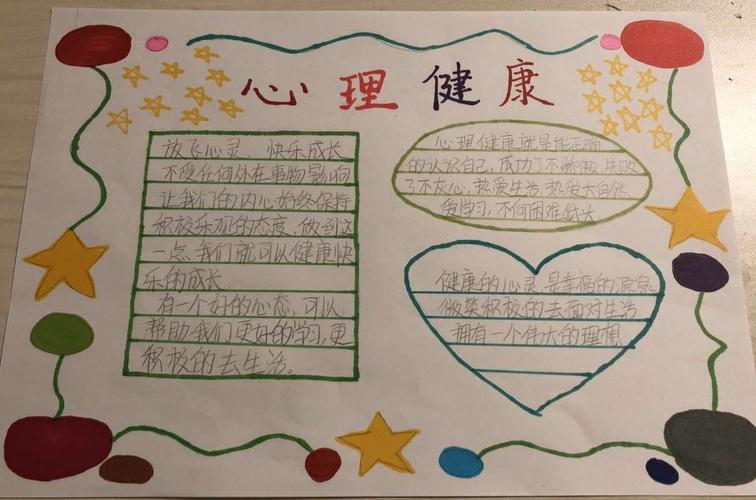 心理健康
放飞心灵 快乐成长
不受任何外在事物影响
让我们的内心始终保持
积极乐观的态度,做到这
一点,我们就可以健康快
乐的成长
有一个好的心态,可以
帮助我们更好的学习,更
积极的去生活。
心理健康就是能正确
的认识自己,成功了不骄傲,失败
了不灰心,热爱生活,热爱大自然
爱学习,不向困难低头
健康的心灵,是幸福的源泉。
微笑积极的去面对生活
拥有一个伟大的理想